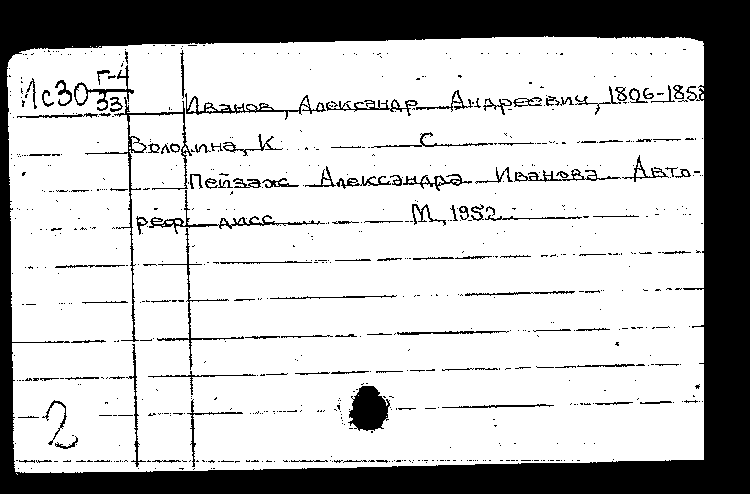 Ис30 Г-4
33
Иванов, Александр Андреевич, 1806-1858
Володина, К С
Пейзаж Александра Иванова Авто-
реф дисс М, 1952
2